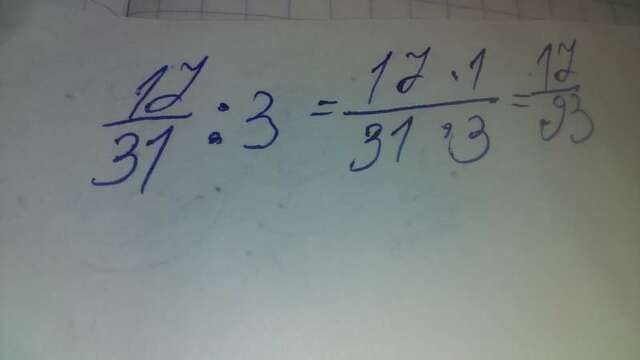 17/31 : 3 = 17 · 1/31 · 3 = 17/93